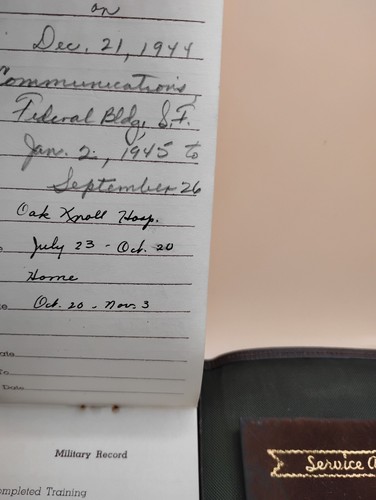 on
Dec. 21, 1944
Communications,
Federal Bldg, S.F.
Jan. 2, 1945 to
September 26
Oak Knoll Hosp.
July 23 - Oct. 20
Home
Oct. 20 - Nov. 3
Date
Military Record
Completed Training
Service